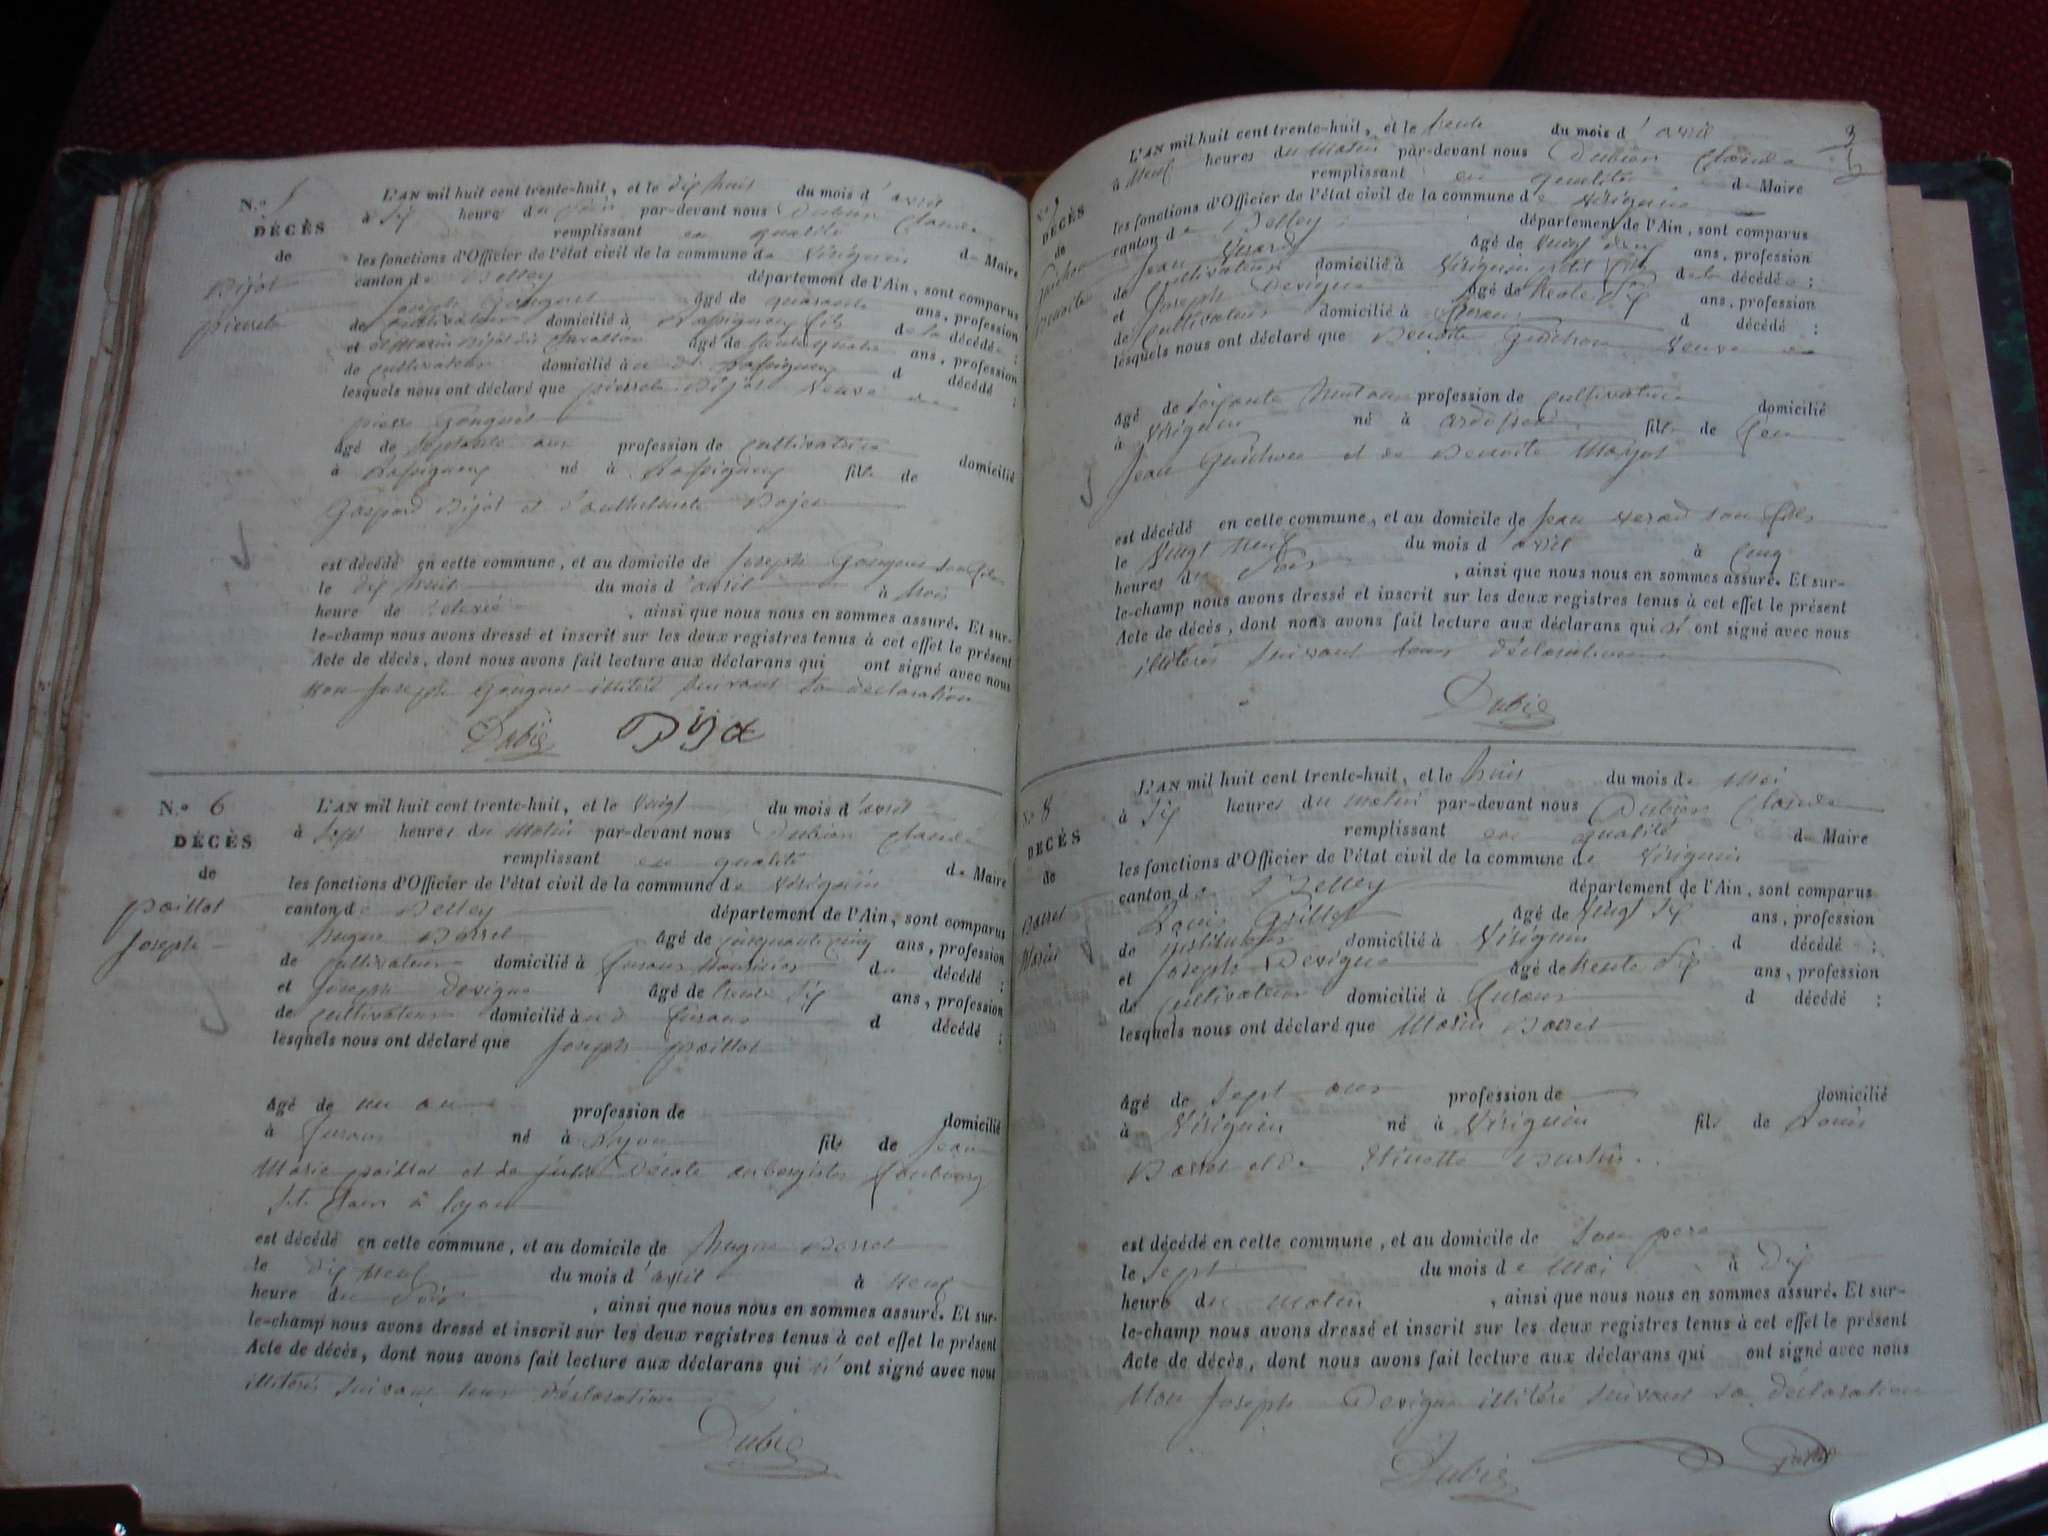 N.o 5
DÉCÈS
de
Bijot
pierrete
L'AN mil huit cent trente-huit, et le dix huit du mois d'avril
à six heure du soir par-devant nous Dubion Claude
remplissant en qualité de Maire
les fonctions d'Officier de l'état civil de la commune de Virignin
canton de Belley département de l'Ain, sont comparus
joseph Gougues Agé de quarante ans, profession
de cultivateur domicilié à fils de la décédée ;
et Marin Bijot Agé de quatre ans, profession
de cultivateur domicilié à d décédé ;
lesquels nous ont déclaré que pierrete Bijot Veuve de
pierre Gougues
Agé de Septante ans profession de Cultivatrice domicilié
à né à fille de
Gaspard Bijot et
est décédé en cette commune, et au domicile de Joseph Gougues son fils
le dix huit du mois d'avril à trois
heure de , ainsi que nous nous en sommes assuré. Et sur-
le-champ nous avons dressé et inscrit sur les deux registres tenus à cet effet le présent
Acte de décès, dont nous avons fait lecture aux déclarans qui ont signé avec nous
non Joseph Gougues illitéré suivant sa déclaration
Dubie Bijot
N.o 6
DÉCÈS
de
paillot
Joseph
L'AN mil huit cent trente-huit, et le vingt du mois d'avril
à Sept heures du Matin par-devant nous Dubion Claude
remplissant en qualité de Maire
les fonctions d'Officier de l'état civil de la commune de Virignin
canton de Belley département de l'Ain, sont comparus
hugue Barret Agé de cinquante cinq ans, profession
de cultivateur domicilié à furans du décédé ;
et Joseph Devigne Agé de trente six ans, profession
de cultivateur domicilié à furans d décédé ;
lesquels nous ont déclaré que Joseph paillot
Agé de un an profession de domicilié
à furans né à Lyon fils de Jean
Marie paillot et de aubergistes faubourg
St. Clair à Lyon
est décédé en cette commune, et au domicile de hugue Barret
le dix neuf du mois d'avril à neuf
heure du soir , ainsi que nous nous en sommes assuré. Et sur-
le-champ nous avons dressé et inscrit sur les deux registres tenus à cet effet le présent
Acte de décès, dont nous avons fait lecture aux déclarans qui n'ont signé avec nous
illitérés suivant leur déclaration
Dubie
3
DÉCÈS
de
Guichon
Benoite
L'AN mil huit cent trente-huit, et le trente du mois d'avril
à Neuf heures du Matin par-devant nous Dubion Claude
remplissant en qualité de Maire
les fonctions d'Officier de l'état civil de la commune de Virignin
canton de Belley département de l'Ain, sont comparus
Jean Agé de Vingt ans, profession
de Cultivateur domicilié à Virignin fils de la décédée ;
et Joseph Devigne Agé de trente six ans, profession
de Cultivateur domicilié à furans d décédé ;
lesquels nous ont déclaré que Benoite Guichon Veuve de
Agé de Soixante huit ans profession de cultivatrice domicilié
à Virignin né à fille de feu
Jean Guichon et de Benoite
est décédé en cette commune, et au domicile de Jean son fils
le Vingt neuf du mois d avril à Cinq
heures du Soir , ainsi que nous nous en sommes assuré. Et sur-
le-champ nous avons dressé et inscrit sur les deux registres tenus à cet effet le présent
Acte de décès, dont nous avons fait lecture aux déclarans qui n'ont signé avec nous
illitérés suivant leurs déclarations
Dubie
N.o 8
DÉCÈS
de
Barret
Marin
L'AN mil huit cent trente-huit, et le huit du mois de Mai
à dix heures du matin par-devant nous Dubion Claude
remplissant en qualité de Maire
les fonctions d'Officier de l'état civil de la commune de Virignin
canton de Belley département de l'Ain, sont comparus
Louis Grillet Agé de Vingt six ans, profession
de instituteur domicilié à Virignin d décédé ;
et Joseph Devigne Agé de trente six ans, profession
de Cultivateur domicilié à furans d décédé ;
lesquels nous ont déclaré que Marin Barret
Agé de Sept ans profession de domicilié
à Virignin né à Virignin fils de Louis
Barret et de
est décédé en cette commune, et au domicile de Son pere
le Sept du mois de Mai à dix
heure du matin , ainsi que nous nous en sommes assuré. Et sur-
le-champ nous avons dressé et inscrit sur les deux registres tenus à cet effet le présent
Acte de décès, dont nous avons fait lecture aux déclarans qui ont signé avec nous
Non Joseph Devigne illitéré suivant sa déclaration
Dubie